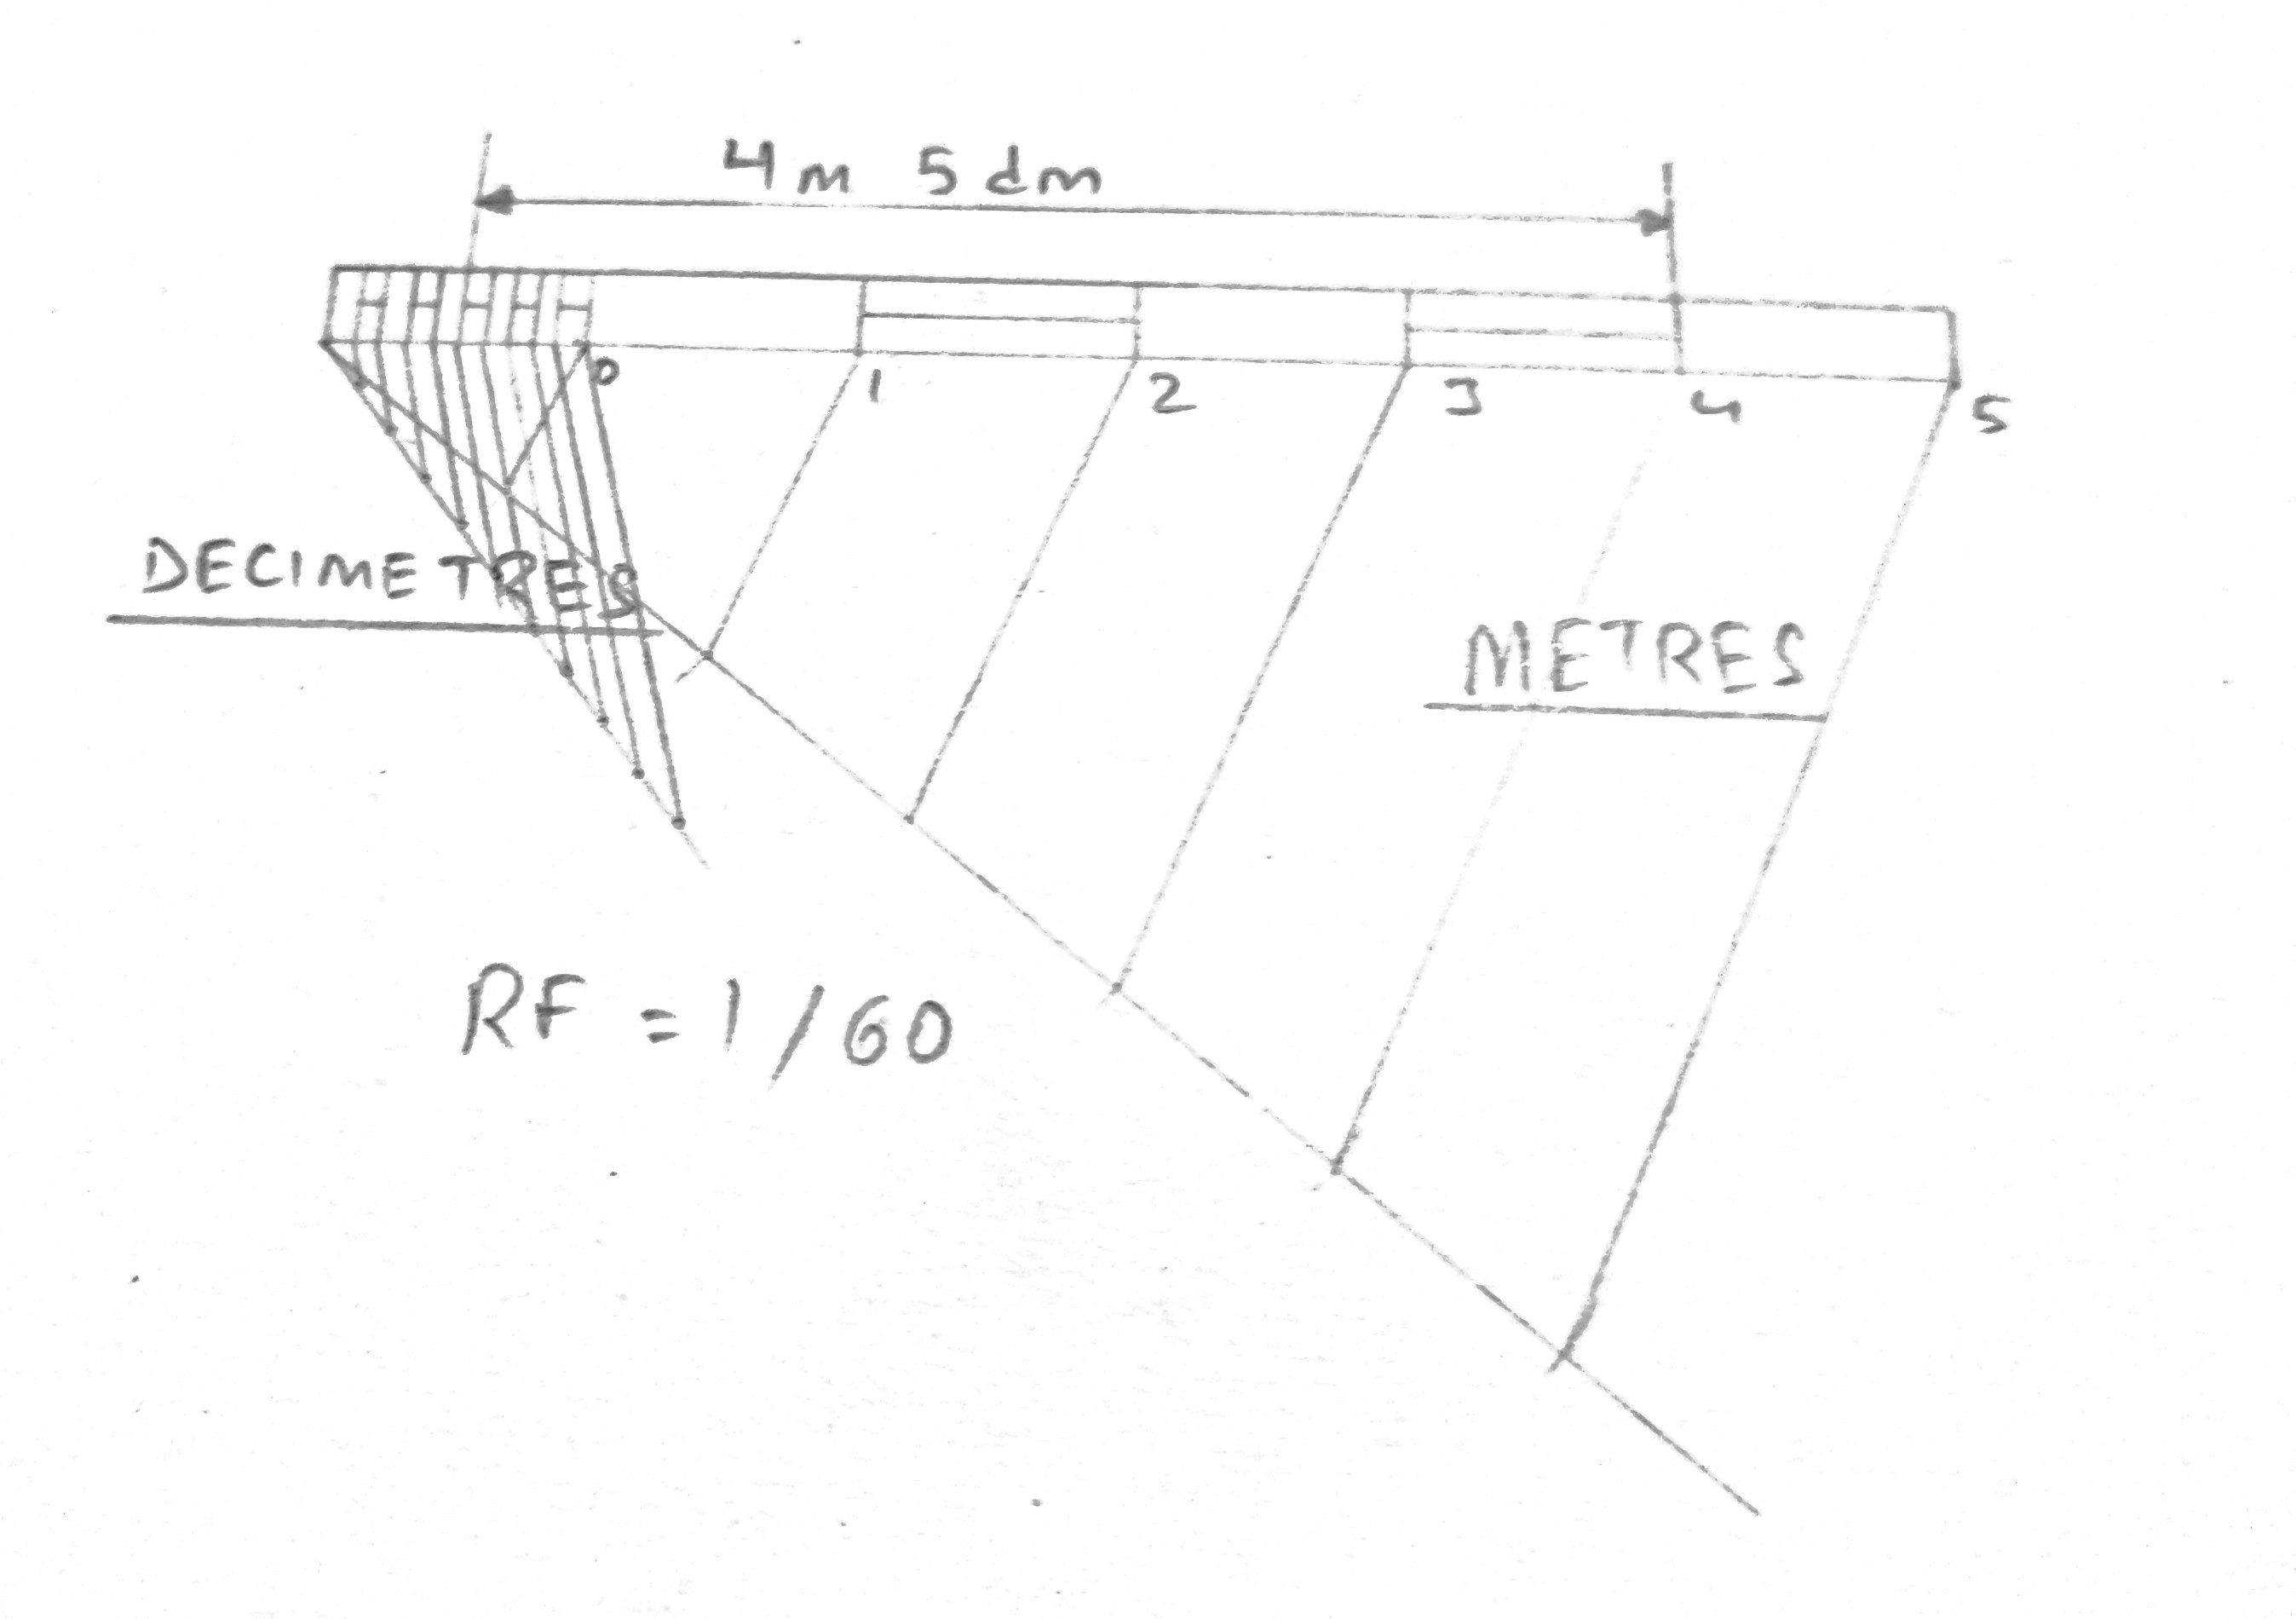 4m 5dm
0 1 2 3 4 5
DECIMETRES
METRES
RF = 1/60